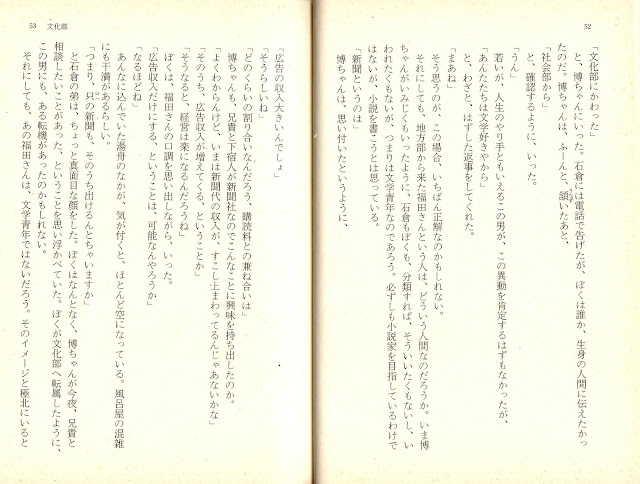 52
「文化部にかわった」
と、博ちゃんにいった。石倉には電話で告げたが、ぼくは誰か、生身の人間に伝えたかっ
たのだ。博ちゃんは、ふーんと、頷いたあと、
「社会部から」
と、確認するように、いった。
「うん」
若いが、人生のやり手ともいえるこの男が、この異動を肯定するはずもなかったが、
「あんたたちは文学好きやから」
と、わざと、はずした返事をしてくれた。
「まあね」
そう思うのが、この場合、いちばん正解なのかもしれない。
それにしても、地方部から来た福田さんという人は、どういう人間なのだろうか。いま博
ちゃんがいみじくもいったように、石倉もぼくも、分類すれば、そういいたくもないし、い
われたくもないが、つまりは文学青年なのであろう。必ずしも小説家を目指しているわけで
はないが、小説を書こうとは思っている。
「新聞というのは」
博ちゃんは、思い付いたというように、
53 文化部
「広告の収入大きいんでしょ」
「そうらしいね」
「どのくらいの割り合いなんだろう、購読料との兼ね合いは」
博ちゃんも、兄貴と下宿人が新聞社なのでこんなことに興味を持ち出したのか。
「よくわからんけど、いまは新聞代の収入が、すこし上まわってるんじゃあないかな」
「そのうち、広告収入が増えてくる、ということか」
「そうなると、経営は楽になるんだろうね」
ぼくは、福田さんの口調を思い出しながら、いった。
「広告収入だけにする、ということは、可能なんやろうか」
「なるほどね」
あんなに込んでいた湯舟のなかが、気が付くと、ほとんど空になっている。風呂屋の混雑
にも干満があるらしい。
「つまり、只の新聞も、そのうち出けるんとちゃいますか」
と石倉の弟は、ちょっと真面目な顔をした。ぼくはなんとなく、博ちゃんが今夜、兄貴と
相談したいことがあった、ということを思い浮かべていた。ぼくが文化部へ転属したように、
この男にも、ある転機があったのかもしれない。
それにしても、あの福田さんは、文学青年ではないだろう。そのイメージと極北にいると